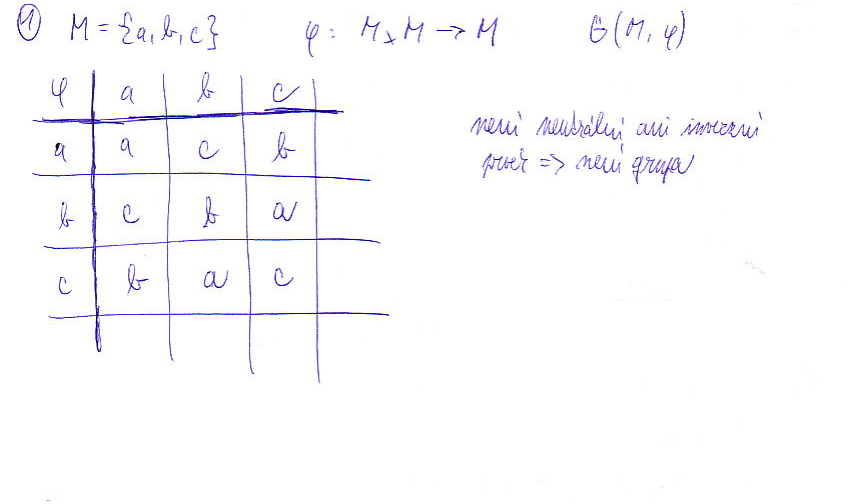 ① M = {a, b, c} φ : M × M → M G(M, φ)
φ a b c
a a c b
b c b a
c b a c
není neutrální ani inverzní
prvek => není grupa